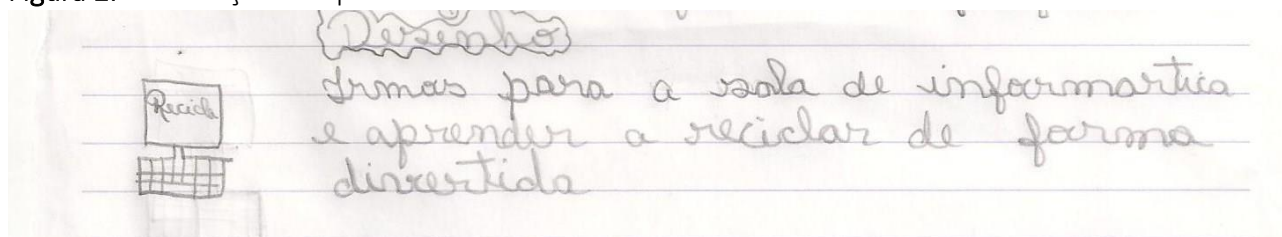 Desenho
Irmos para a sala de informartica
Recicla
e aprender a reciclar de forma
divertida